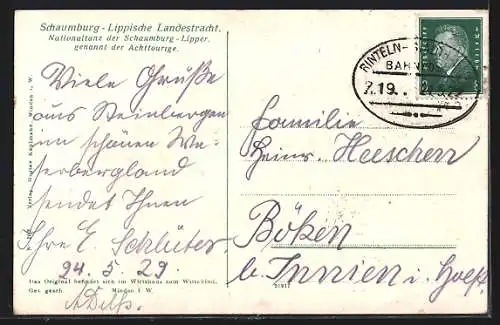 Schaumburg-Lippische Landestracht.
Nationaltanz der Schaumburg-Lipper.
genannt der Achttourige.
Viele Grüße
aus Steinbergen
im schönen We-
serbergland
sendet Ihnen
Ihre E. Schlüter.
24. 5. 29.
Das Original befindet sich im Wirtshaus zum Wittekind.
Ges. gesch. Minden i. W.
RINTELN-
BAHNPOST
Z.19.
Familie
Heinr. Heeschen
Böken
b. Innien i. Holst